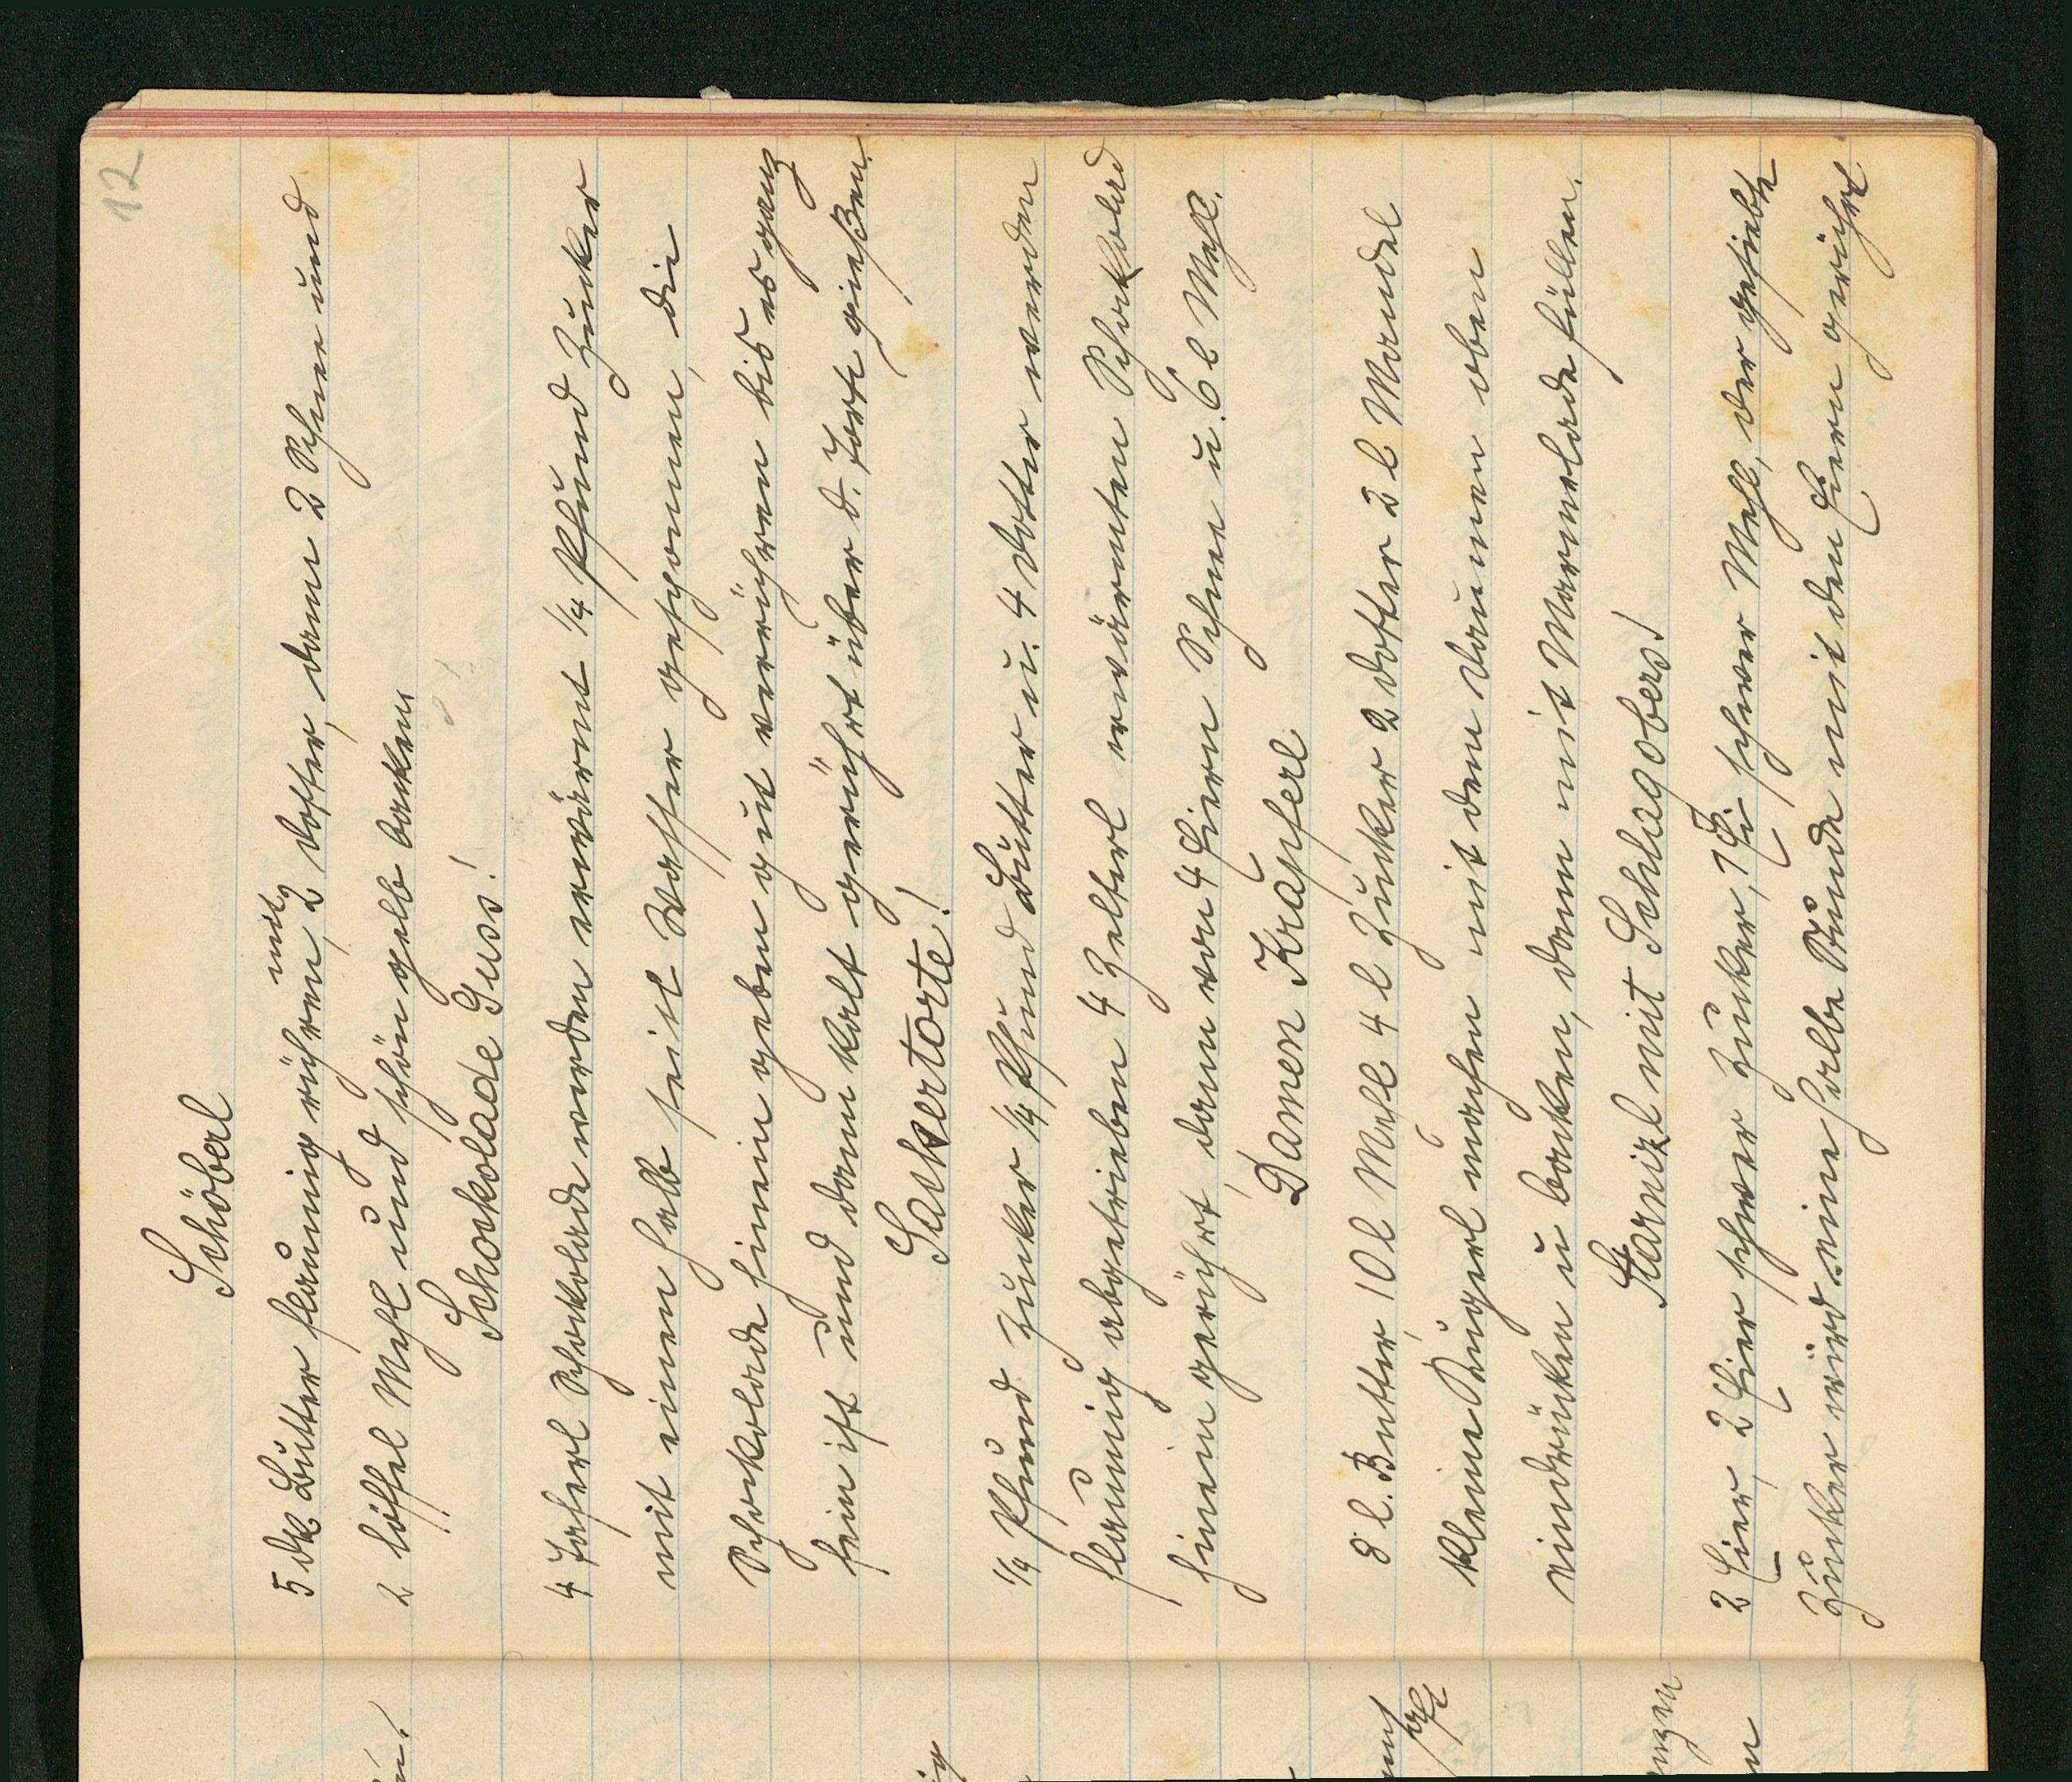 12
Schöberl
mit
5 dk Butter flaumig rühren, 2 Dotter, dann 2 Schnee und
2 löffel Mehl und schön gelb backen
Schockolade Guss!
4 Taferl Schokolade werden erwärmt 1/4 Pfund Zucker
mit einem halb seitl Wasser gesponnen, die
Schokolade hinein geben gut verrühren bis es ganz
fein ist und dann kalt gerührt über d. Torte gießen.
Sackertorte!
1/4 Pfund Zucker 1/4 Pfund Butter u. 4 Dotter werden
flaumig abgetrieben 4 Zelterl erwärmten Schokolad
hinein gerührt, dann von 4 Eiern Schnee u. 6 l Mehl.
Damen Krapferl
8 l. Butter, 10 l Mehl 4 l Zucker 2 Dotter 2 l Mandel
kleine Kugerl machen mit dem Daumen oben
eindrücken u backen, dann mit Marmelade füllen.
Starnizl mit Schlagobers!
2 Eier, 2 Eier schwer Zucker, 1 Ei schwer Mehl, der gesiebte
Zucker wird eine halbe Stunde mit den Eiern gerührt